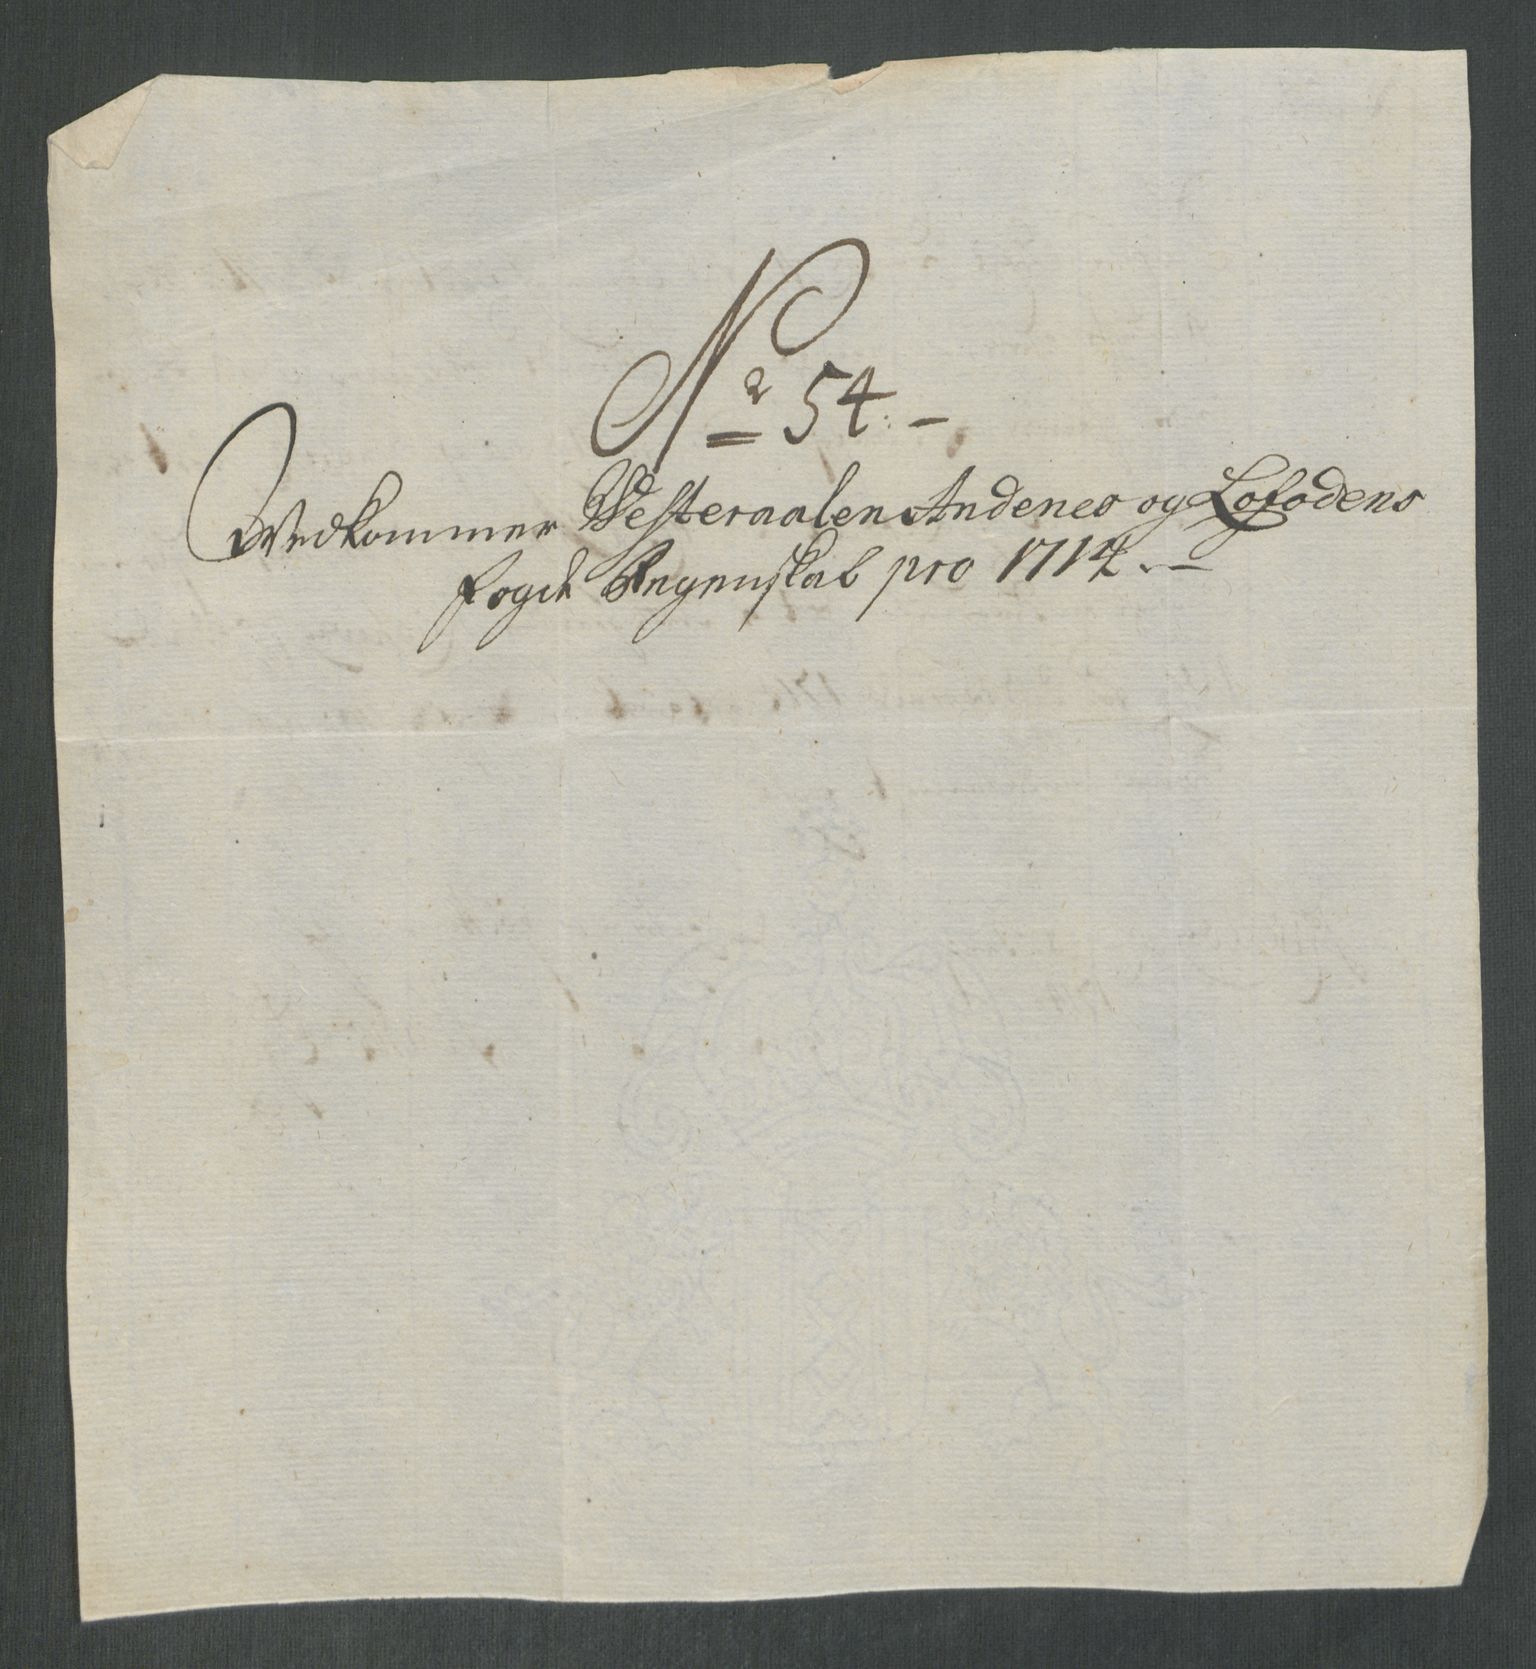 No 54. –
Vedkommer Westeraalen Andenes og Lofodens
fogd Regenskab pro 1714. –